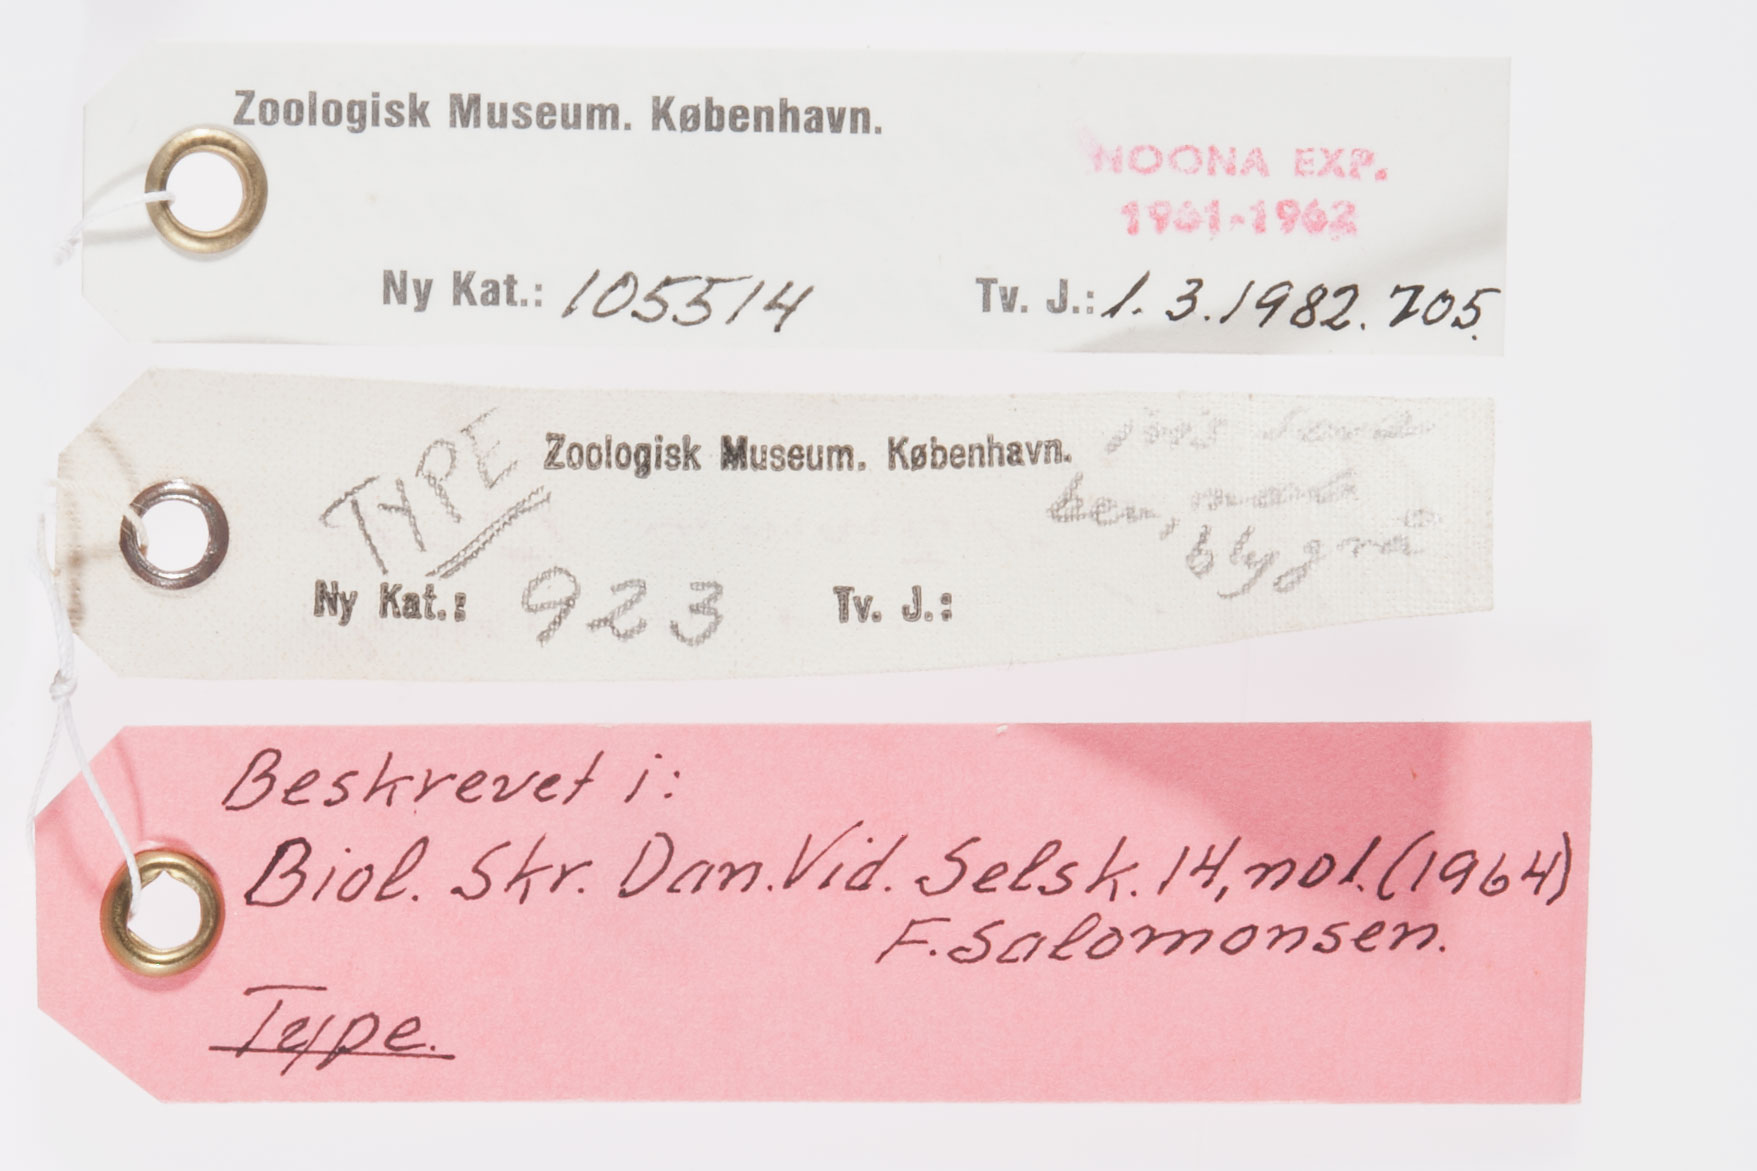 Zoologisk Museum. København.
NOONA EXP.
1961-1962
Ny Kat.: 105514 Tv. J.: 1.3.1982.705.
TYPE
Zoologisk Museum. København.
ben,
blygrå
Ny Kat.: 923 Tv. J.:
Beskrevet i:
Biol. Skr. Dan. Vid. Selsk. 14, no 1. (1964)
F. Salomonsen.
Type.